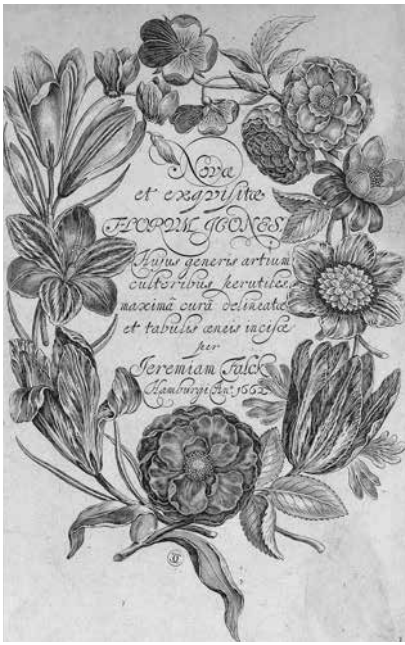 Novæ
et exqvisitæ
FLORUM ICONES,
Hujus generis artium
cultoribus perutiles,
maximâ curâ delineatæ
et tabulis æneis incisæ
per
Jeremiam Falck
Hamburgi Aº. 1662.